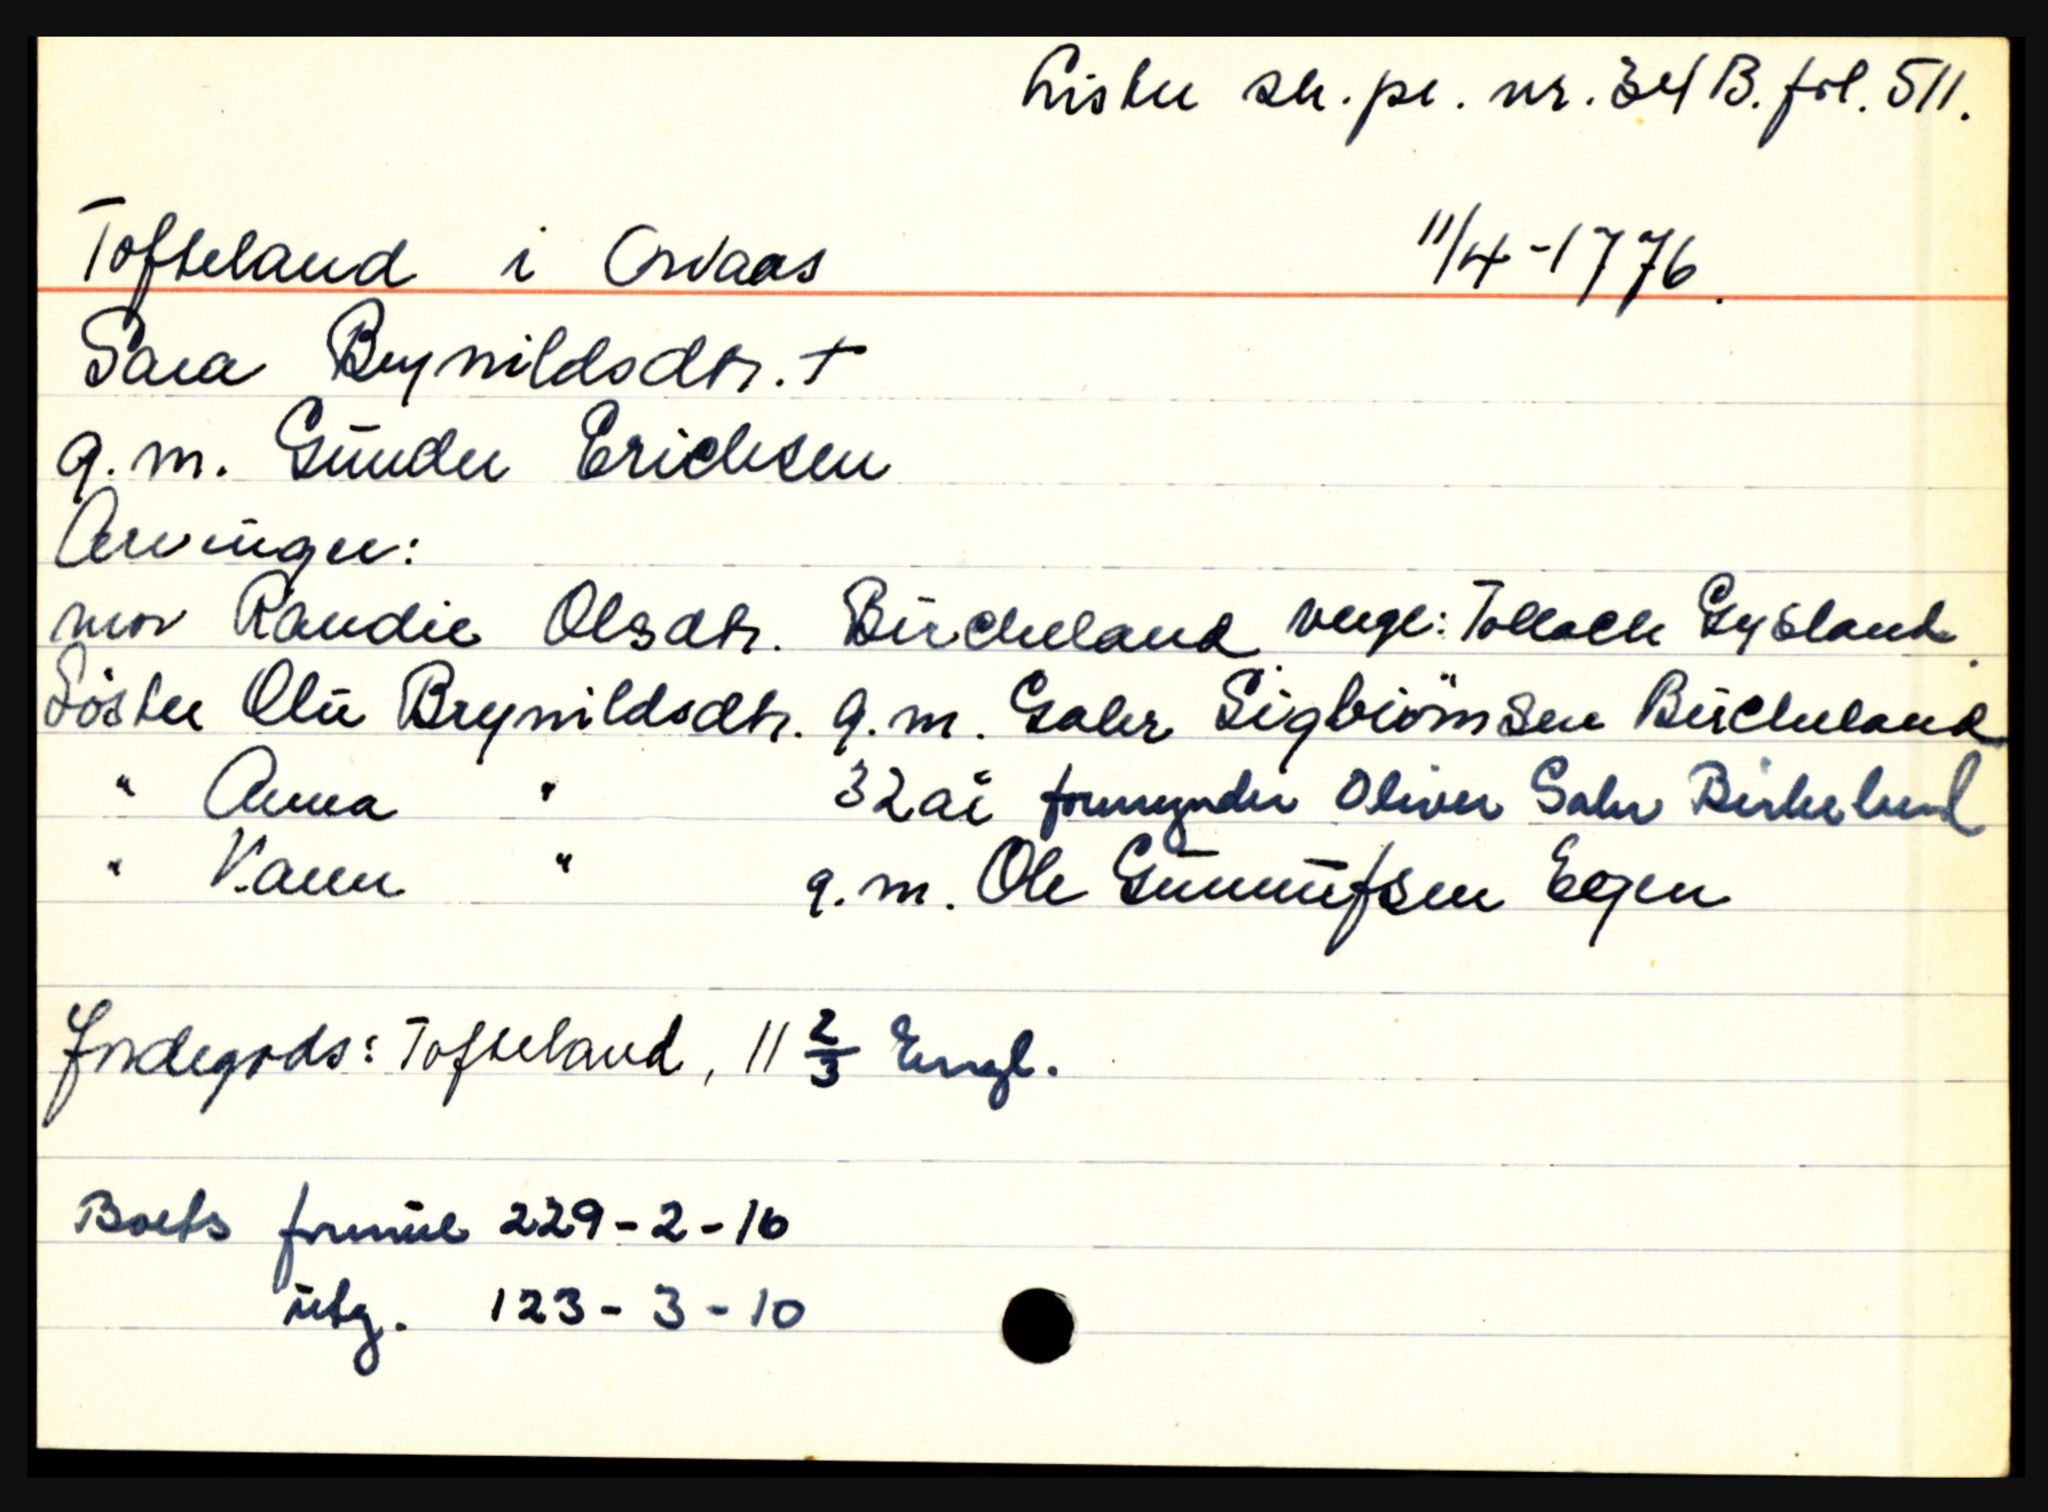 Lister sk. pr. nr. 34 B. fol. 511.
Tofteland i Qvaas 11/4-1776.
Sara Brynildsdtr. +
g. m. Gunder Erichsen
Arvinger:
mor Randie Olsdtr. Bircheland verge: Tollach Gysland.
Söster Olu Brynildsdtr. g. m. Gahr Sigbiörnsen Bircheland
" Anna " 32 år formynder Oliver Gahr Birkeland
" Karen " g. m. Ole Gunnufsen Eegen
Jordegods: Tofteland, 11 2/3 Engl.
Boets formue 229-2-16
utg. 123-3-10